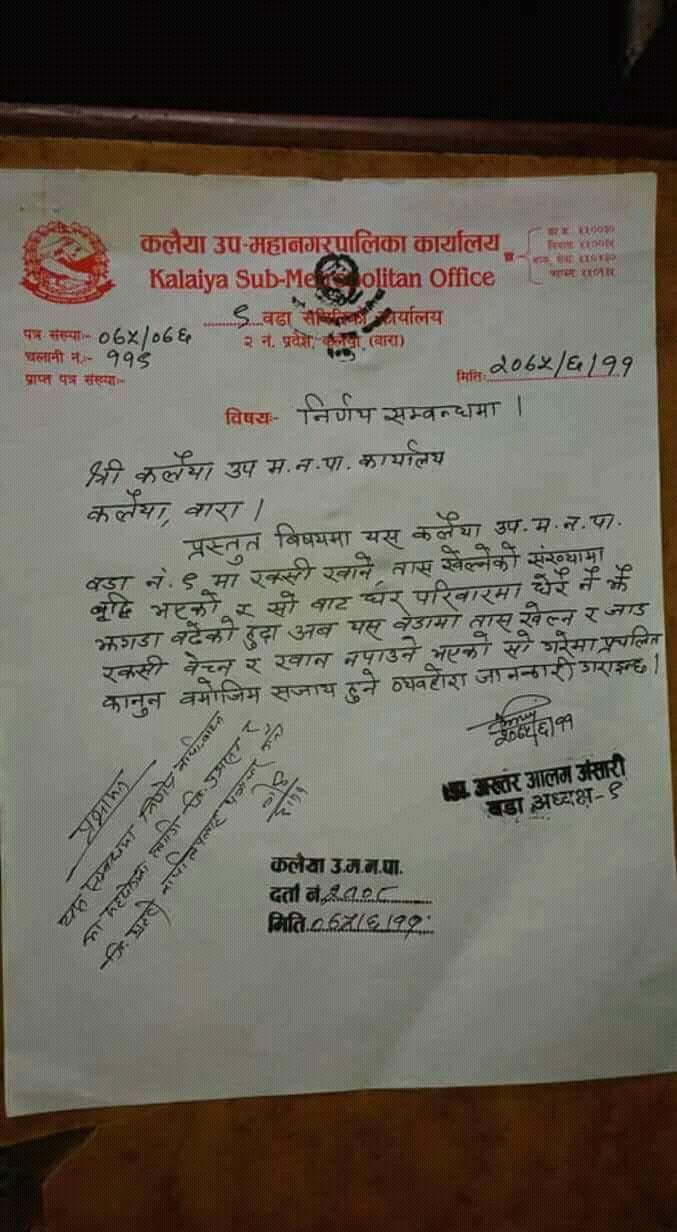 कलैया उप-महानगरपालिका कार्यालय
Kalaiya Sub-Metropolitan Office
९ वडा समितिको कार्यालय
२ नं. प्रदेश, कलैया (बारा)
पत्र संख्याः- ०७५/०७६
चलानी नं.- ११९
प्राप्त पत्र संख्याः-
मितिः २०७५/६/११
विषयः- निर्णय सम्बन्धमा ।
श्री कलैया उप म.न.पा. कार्यालय
कलैया, बारा ।
प्रस्तुत विषयमा यस कलैया उप.म.न.पा.
वडा नं.९ मा रक्सी खाने, तास खेल्नेको संख्यामा
बृद्दि भएको र सो बाट घर परिवारमा धेरै नै झै
झगडा बढेको हुदा अब यस वडामा तास खेल्न र जाड
रक्सी बेच्न र खान नपाउने भएको सो गरेमा प्रचलित
कानुन बमोजिम सजाय हुने व्यवहोरा जानकारी गराइन्छ ।
२०७५/६/११
अख्तर आलम अंसारी
वडा अध्यक्ष-९
कलैया उ.म.न.पा.
दर्ता नं.
मिति ०७५/६/११